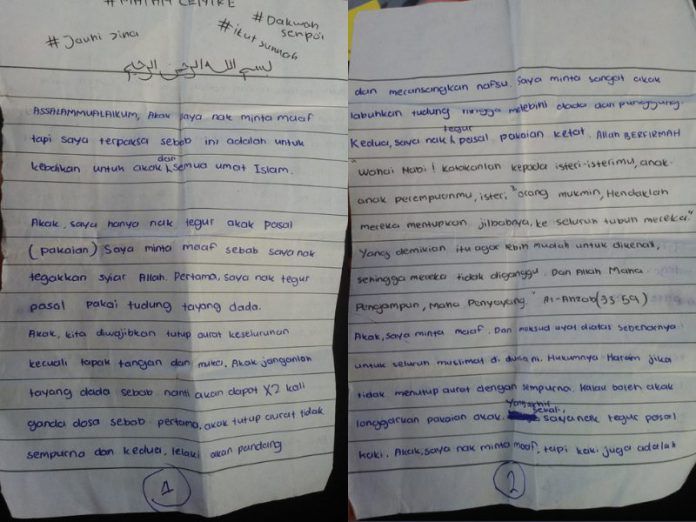 #Jauhi zina
#Dakwah
#ikut sunnah
بسم الله الرحمن الرحيم
ASSALAMMUALAIKUM, Akak saya nak minta maaf
tapi saya terpaksa sebab ini adalah untuk
kebaikan untuk akak dan semua umat Islam.
Akak, saya hanya nak tegur akak pasal
(pakaian) Saya minta maaf sebab saya nak
tegakkan syiar Allah. Pertama, saya nak tegur
pasal pakai tudung tayang dada.
Akak, kita diwajibkan tutup aurat keseluruhan
kecuali tapak tangan dan muka. Akak janganlah
tayang dada sebab nanti akan dapat X2 kali
ganda dosa sebab pertama, akak tutup aurat tidak
sempurna dan kedua, lelaki akan pandang
1
dan meransangkan nafsu. Saya minta sangat akak
labuhkan tudung hingga melebihi dada dan punggung
Kedua, saya nak tegur pasal pakaian ketat. Allah BERFIRMAH
"Wahai Nabi! Katakanlah kepada isteri-isterimu, anak-
anak perempuanmu, isteri" orang mukmin, Hendaklah
mereka menutupkan jilbabnya, ke seluruh tubuh mereka."
Yang demikian itu agar lebih mudah untuk dikenali,
sehingga mereka tidak diganggu. Dan Allah Maha
Pengampun, Maha Penyayang." Al-Ahzab (33:59)
Akak, saya minta maaf. Dan maksud ayat diatas sebenarnya
untuk seluruh muslimat di dunia ni. Hukumnya Haram jika
tidak menutup aurat dengan sempurna. Kalau boleh akak
longgarkan pakaian akak. Yang akhir sekali, saya nak tegur pasal
kaki. Akak, saya nak minta maaf, tapi kaki juga adalah
2